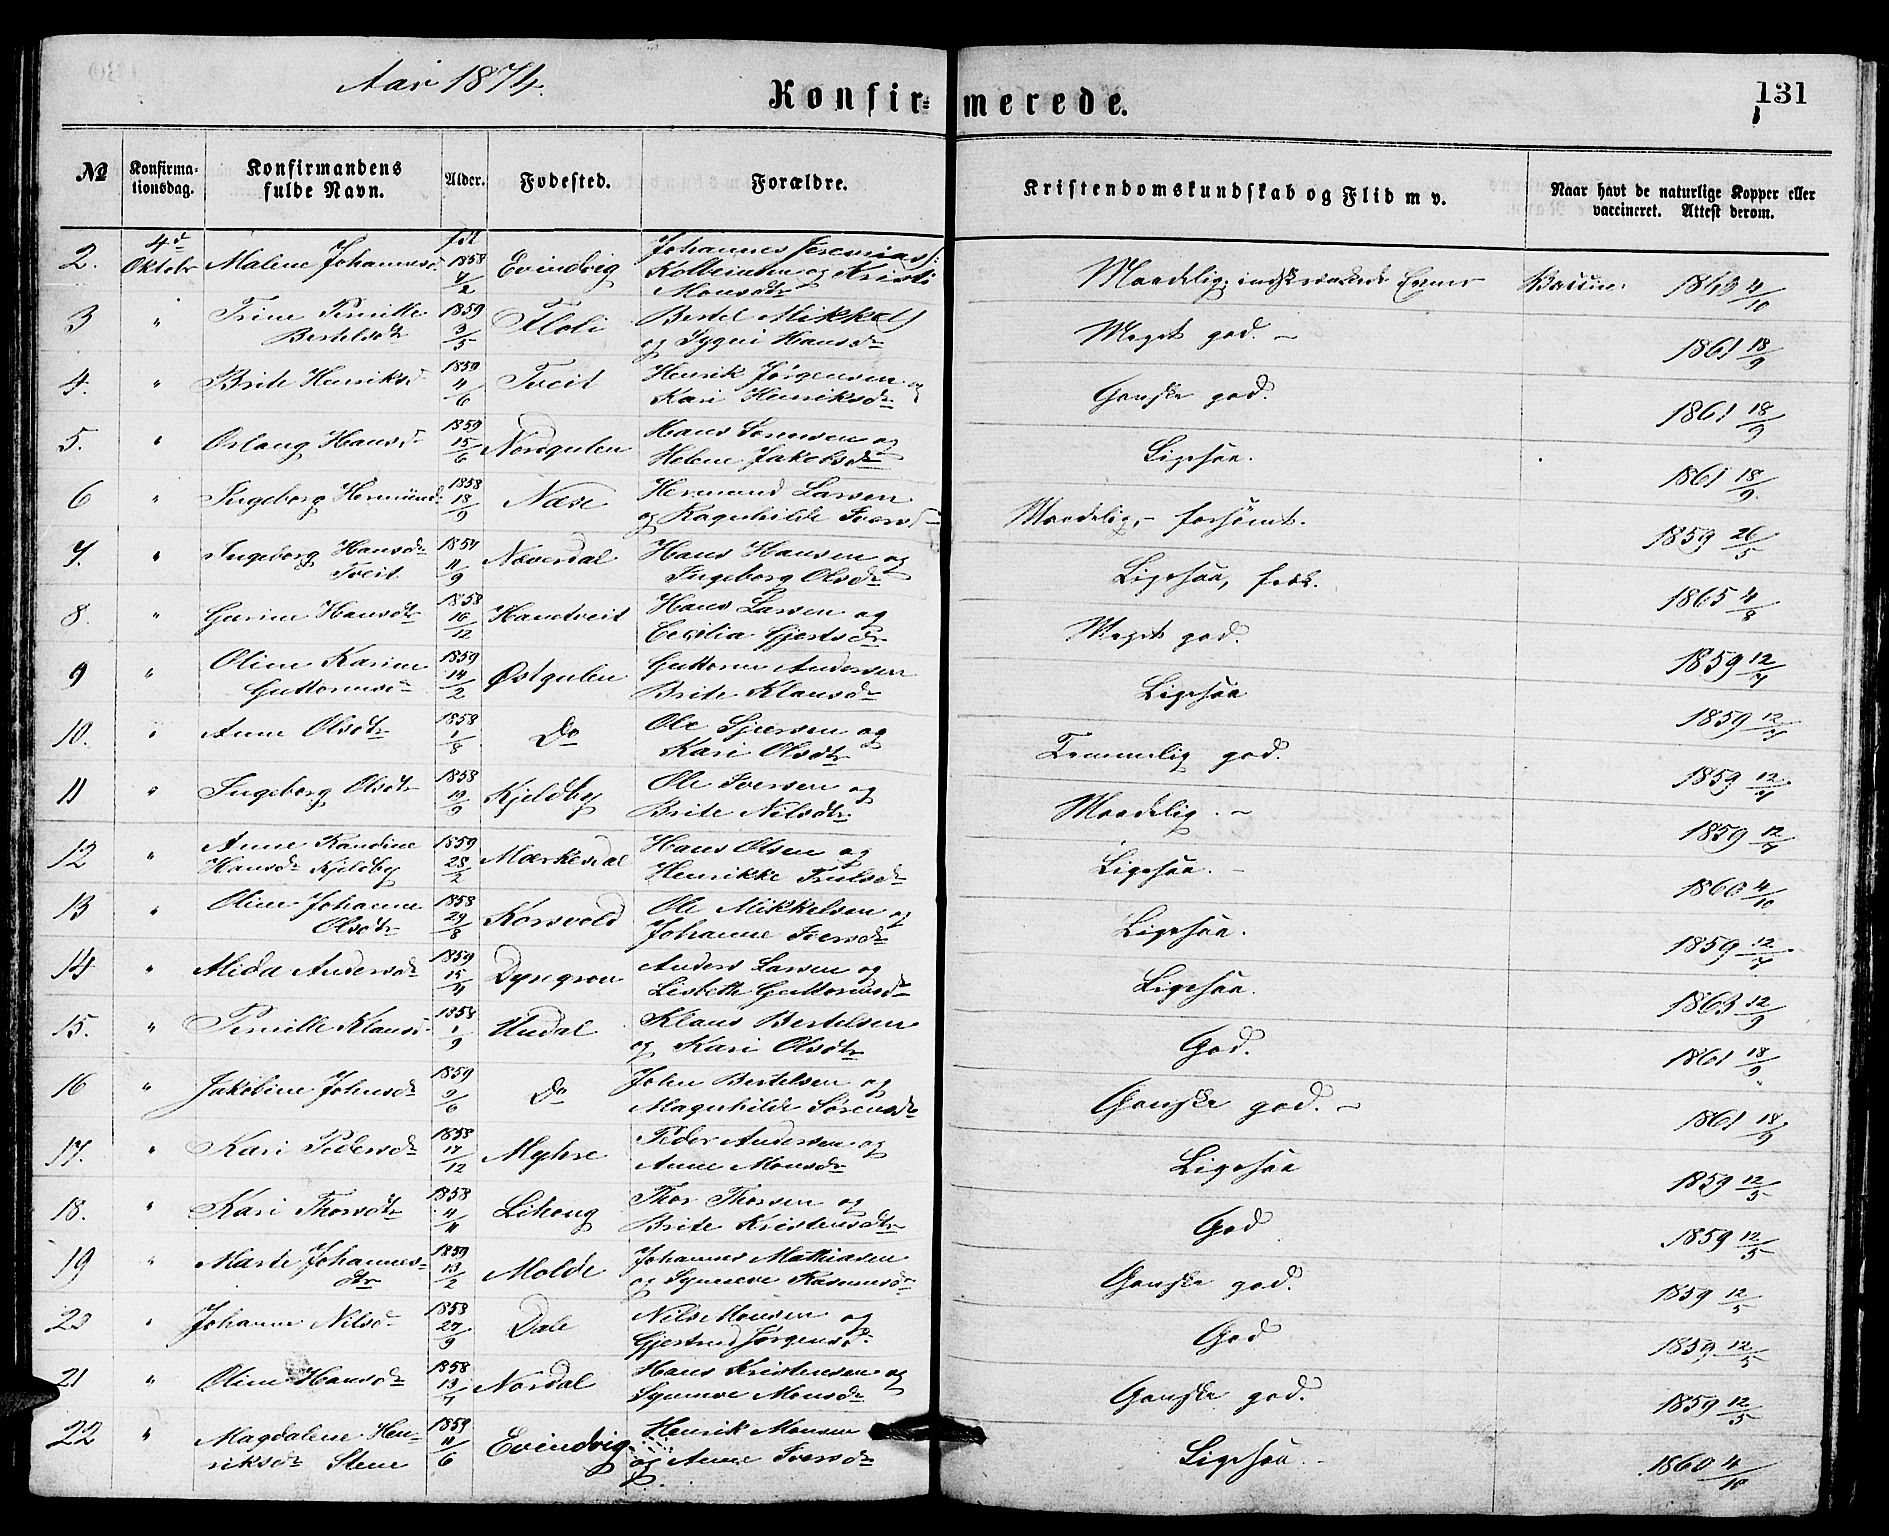 Aar 1874.
Konfir=merede.
131
№
Konfirma-
tionsdag.
Konfirmandens
fulde Navn.
Alder.
Fødested.
Forældre.
Kristendomskundskab og Flid m v.
Naar havt de naturlige Kopper eller
vaccineret. Attest derom.
2. 4d Oktobr Malene Johannesd. fød 1858 7/2 Evindvig Johannes Jeremias
Kolbeinsen og Kristi
Monsdtr Maadelig, indskrænkede Evner Vaccine. 1863 4/10
3 " Trine Pernikke
Bertelsdtr 1859 3/5 Floli Bertel Mikkels
og Sygni Hansdr Meget god. 1861 18/9
4. " Brite Henriksd 1859 4/6 Tveit Henrik Jørgensen og
Kari Henriksdr Ganske god. 1861 18/9
5. " Oslaug Hansd 1859 15/6 Nordgulen Hans Sørensen og
Helene Jakobsdr Ligesaa. 1861 18/9
6 " Ingeborg Hermundd. 1858 18/9 Næse Hermund Larsen
og Ragnhilde Iversd Maadelig, forsømt. 1859 26/5
7. " Ingeborg Hansdr
Tveit 11/9 Nøverdal Hans Hansen og
Ingeborg Olsdr Ligesaa, 1865 4/8
8. " Gurine Hansdtr 1858 16/12 Handtveit Hans Larsen og
Cecilia Gjertsdr Meget god. 1859 12/7
9 " Oline Karine
Guttormsd 1859 14/2 Østgulen Guttorm Andersen
Brite Klausdr Ligesaa 1859 12/7
10. " Anne Olsdtr 1858 1/8 Do Ole Sjursen og
Kari Olsdtr Temmelig god. 1859 12/7
11 " Ingeborg Olsdtr 1858 19/9 Kjeldby Ole Iversen og
Brite Nilsdtr Maadelig. 1859 12/7
12 " Anne Randine
Hansdr Kjeldby 1859 28/2 Mærkesdal Hans Olsen og
Henrikke Trulsdr Ligesaa. 1860 4/10
13 " Oline Johanne
Olsdtr 1858 29/8 Korsvold Ole Mikkelsen og
Johanne Iversdr Ligesaa. 1859 12/7
14 " Alida Andersdr 1859 Dyregrov Anders Larsen og
Lisbeth Guttormsdr Ligesaa. 1863 12/9
15. " Pernille Klausd 1858 1/9 Hudal Klaus Bertelsen
og Kari Olsdtr God. 1861 18/9
16 " Jakobine Johnsdr 1859 9/6 Do John Bertelsen og
Magnhilde Sørensdr Ganske god. 1861 18/9
17. " Kari Pedersdr 1858 17/12 Myhre Peder Andersen og
Anne Monsdr Ligesaa 1859 12/5
18. " Kari Thorsdtr 1858 4/11 Lihoug Thor Thorsen og
Brite Kristensdtr God 1859 12/5
19 " Marte Johannes-
dtr 1859 13/2 Molde Johannes Mathiasen
og Synneve Rasmusdr Ganske god. 1859 12/5
20 " Johanne Nilsd 1858 27/9 Dale Nils Monsen og
Gjertrud Jørgensd. God 1859 12/5
21 " Oline Hansdr 1858 Nordal Hans Kristensen og
Synneve Monsdr Ganske god. 1859 12/5
22 " Magdalene Hen-
riksdr Stene 1859 11/6 Evindvig. Henrik Monsen
og Anne Iversdr Ligesaa. 1860 4/10